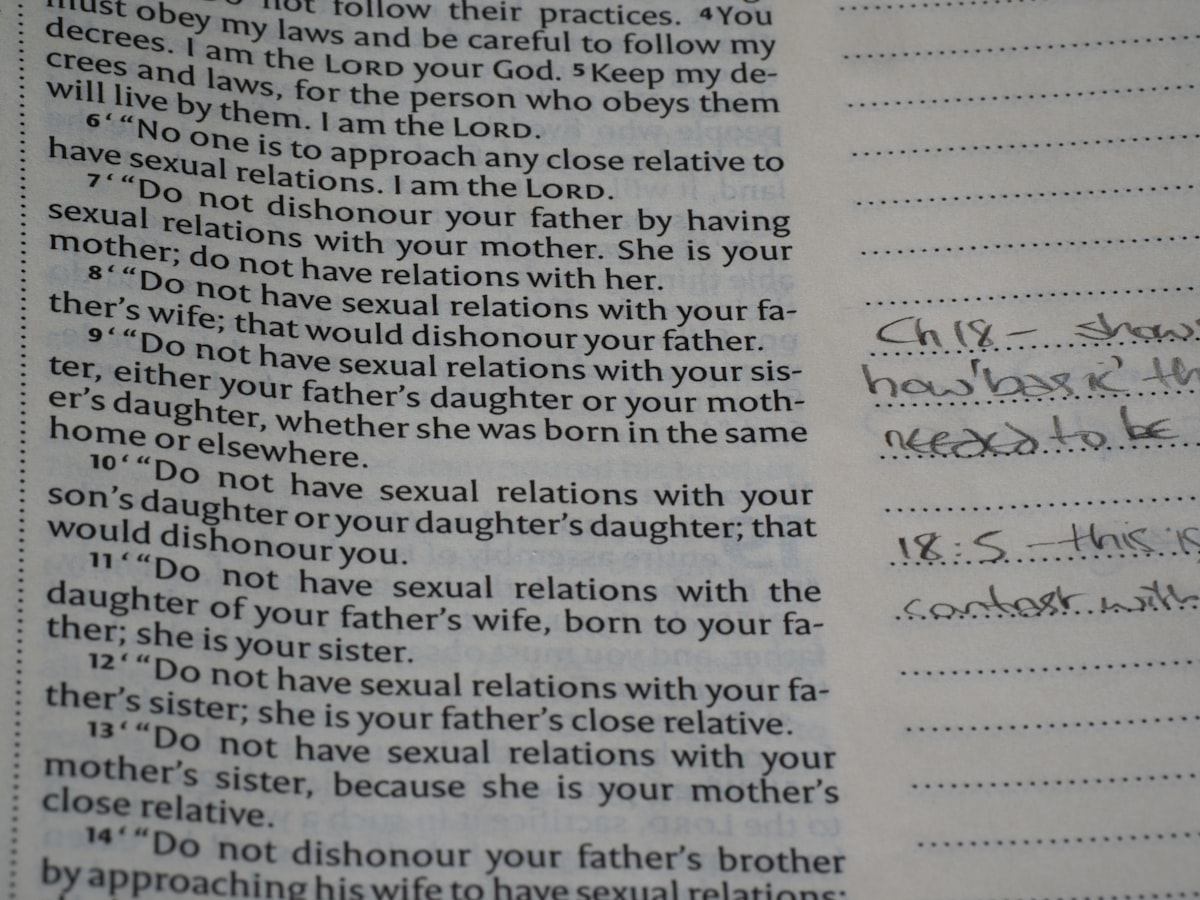 not follow their practices. 4 You
must obey my laws and be careful to follow my
decrees. I am the LORD your God. 5 Keep my de-
crees and laws, for the person who obeys them
will live by them. I am the LORD.
6 ‘ “No one is to approach any close relative to
have sexual relations. I am the LORD.
7 ‘ “Do not dishonour your father by having
sexual relations with your mother. She is your
mother; do not have relations with her.
8 ‘ “Do not have sexual relations with your fa-
ther’s wife; that would dishonour your father.
9 ‘ “Do not have sexual relations with your sis-
ter, either your father’s daughter or your moth-
er’s daughter, whether she was born in the same
home or elsewhere.
10 ‘ “Do not have sexual relations with your
son’s daughter or your daughter’s daughter; that
would dishonour you.
11 ‘ “Do not have sexual relations with the
daughter of your father’s wife, born to your fa-
ther; she is your sister.
12 ‘ “Do not have sexual relations with your fa-
ther’s sister; she is your father’s close relative.
13 ‘ “Do not have sexual relations with your
mother’s sister, because she is your mother’s
close relative.
14 ‘ “Do not dishonour your father’s brother
by approaching his wife to have sexual relations;
Ch 18 – shows
how 'basic' th
needed to be
18:5 – this is
contast with